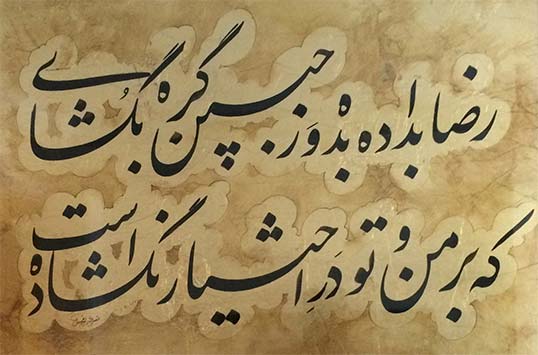 رضا بداده بده وَز جبین گره بگُشای
که بر من و تو دَرِ اختیار نگشاده است